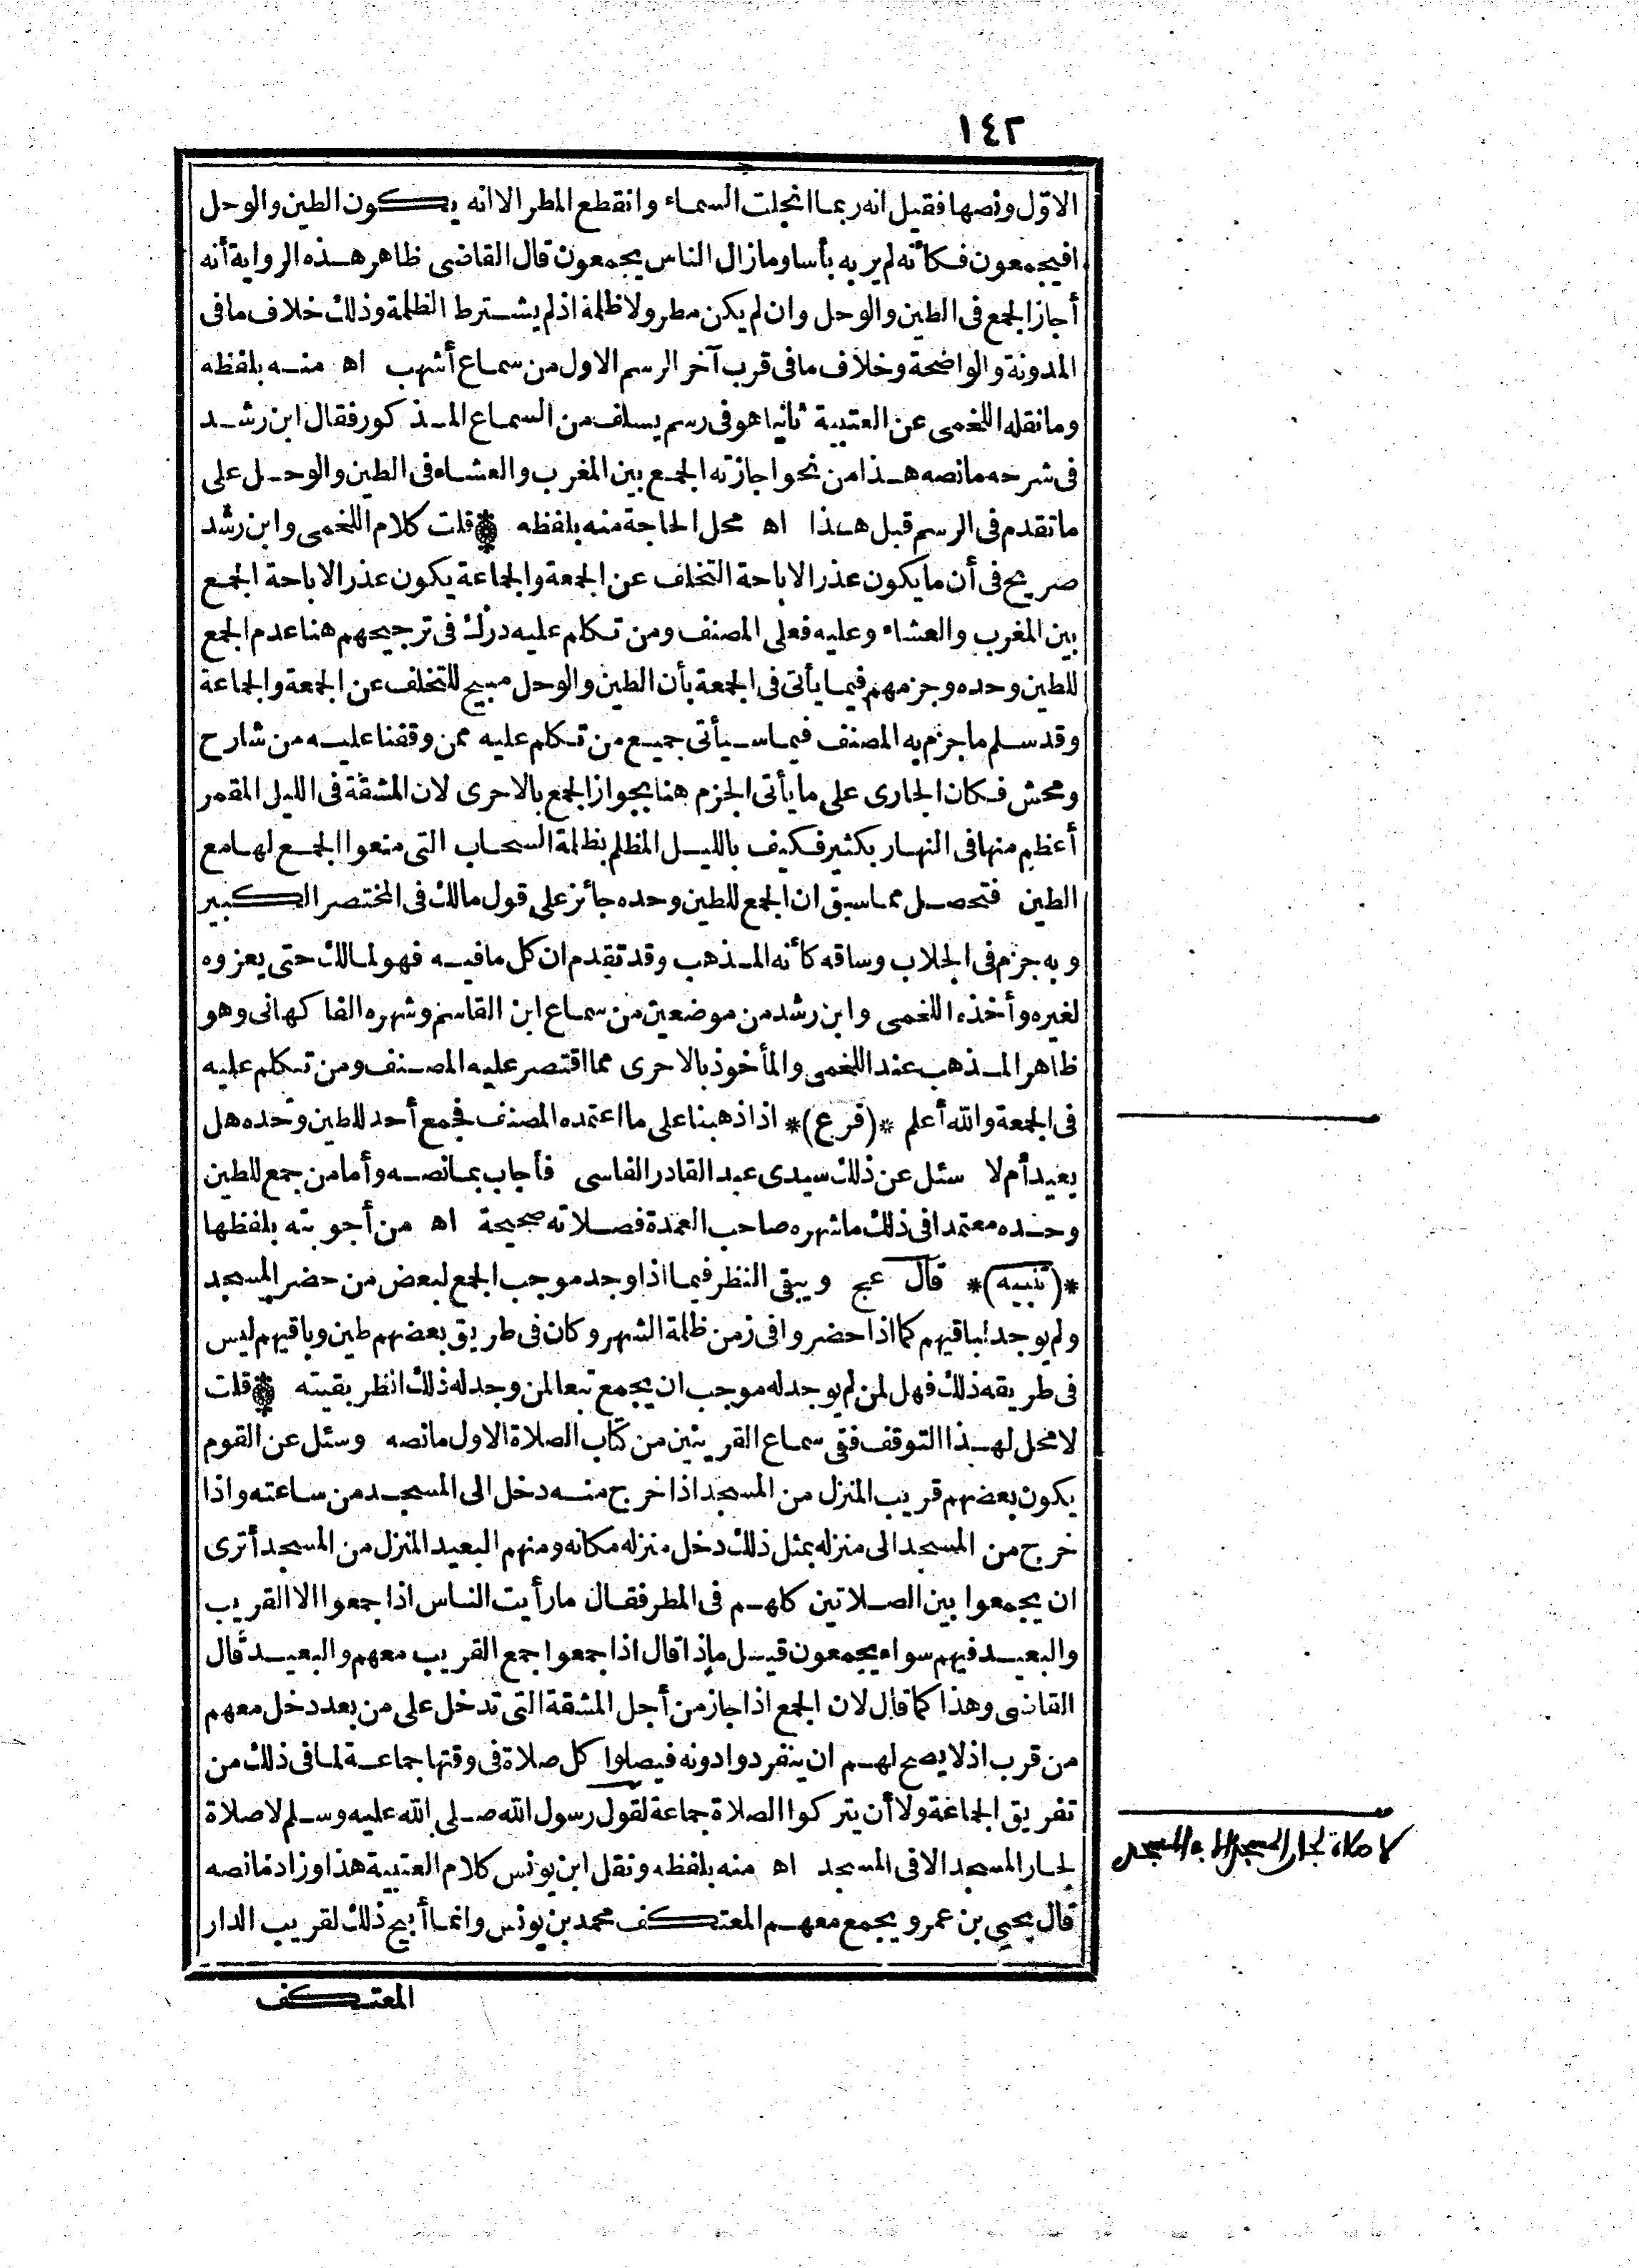 ١٤٢
الاوّل ونصها فقيل انه ربما انجلت السماء وانقطع المطر الا انه يكون الطين والوحل
افيجمعون فكأنه لم ير به بأسا وما زال الناس يجمعون قال القاضى ظاهر هذه الرواية أنه
أجاز الجمع فى الطين والوحل وان لم يكن مطر ولا ظلمة اذ لم يشترط الظلمة وذلك خلاف ما فى
المدونة والواضحة وخلاف ما فى قرب آخر الرسم الاول من سماع أشهب اه منه بلفظه
وما نقله اللخمى عن العتبية ثانيا هو فى رسم يسلف من السماع المذكور فقال ابن رشد
فى شرحه ما نصه هذا من نحو اجازته الجمع بين المغرب والعشاء فى الطين والوحل على
ما تقدم فى الرسم قبل هذا اه محل الحاجة منه بلفظه * قلت كلام اللخمى وابن رشد
صريح فى أن ما يكون عذر الاباحة التخلف عن الجمعة والجماعة يكون عذر الاباحة الجمع
بين المغرب والعشاء وعليه فعلى المصنف ومن تكلم عليه درك فى ترجيحهم هنا عدم الجمع
للطين وحده وجزمهم فيما يأتى فى الجمعة بأن الطين والوحل مبيح للتخلف عن الجمعة والجماعة
وقد سلم ما جزم به المصنف فيما سيأتى جميع من تكلم عليه ممن وقفنا عليه من شارح
ومحش فكان الجارى على ما يأتى الجزم هنا بجواز الجمع بالاحرى لان المشقة فى الليل المقمر
أعظم منها فى النهار بكثير فكيف بالليل المظلم بظلمة السحاب التى منعوا الجمع لها مع
الطين فتحصل مما سبق ان الجمع للطين وحده جائز على قول مالك فى المختصر الكبير
وبه جزم فى الجلاب وساقه كأنه المذهب وقد تقدم ان كل ما فيه فهو لمالك حتى يعزوه
لغيره وأخذه اللخمى وابن رشد من موضعين من سماع ابن القاسم وشهره الفاكهانى وهو
ظاهر المذهب عند اللخمى والمأخوذ بالاحرى مما اقتصر عليه المصنف ومن تكلم عليه
فى الجمعة والله أعلم *(فرع)* اذا ذهبنا على ما اعتمده المصنف فجمع أحد للطين وحده هل
يعيد أم لا سئل عن ذلك سيدى عبد القادر الفاسى فأجاب بما نصه وأما من جمع للطين
وحده معتمدا فى ذلك ما شهره صاحب العمدة فصلاته صحيحة اه من أجوبته بلفظها
*(تنبيه)* قال عج ويبقى النظر فيما اذا وجد موجب الجمع لبعض من حضر المسجد
ولم يوجد لباقيهم كما اذا حضروا فى زمن ظلمة الشهر وكان فى طريق بعضهم طين وباقيهم ليس
فى طريقه ذلك فهل لمن لم يوجد له موجب ان يجمع تبعا لمن وجد له ذلك انظر بقيته * قلت
لا محل لهذا التوقف ففى سماع القرينين من كتاب الصلاة الاول ما نصه وسئل عن القوم
يكون بعضهم قريب المنزل من المسجد اذا خرج منه دخل الى المسجد من ساعته واذا
خرج من المسجد الى منزله بمثل ذلك دخل منزله مكانه ومنهم البعيد المنزل من المسجد أترى
ان يجمعوا بين الصلاتين كلهم فى المطر فقال ما رأيت الناس اذا جمعوا الا القريب
والبعيد فيهم سواء يجمعون قيل ماذا قال اذا جمعوا جمع القريب معهم والبعيد قال
القاضى وهذا كما قال لان الجمع اذا جاز من أجل المشقة التى تدخل على من بعد دخل معهم
من قرب اذ لا يصح لهم ان ينفردوا دونه فيصلوا كل صلاة فى وقتها جماعة لما فى ذلك من
تفريق الجماعة ولا أن يتركوا الصلاة جماعة لقول رسول الله صلى الله عليه وسلم لا صلاة
لجار المسجد الا فى المسجد اه منه بلفظه ونقل ابن يونس كلام العتبية هذا وزاد ما نصه
قال يحيى بن عمر ويجمع معهم المعتكف محمد بن يونس وانما أبيح ذلك لقريب الدار
المعتكف
لا صلاة لجار المسجد الا فى المسجد